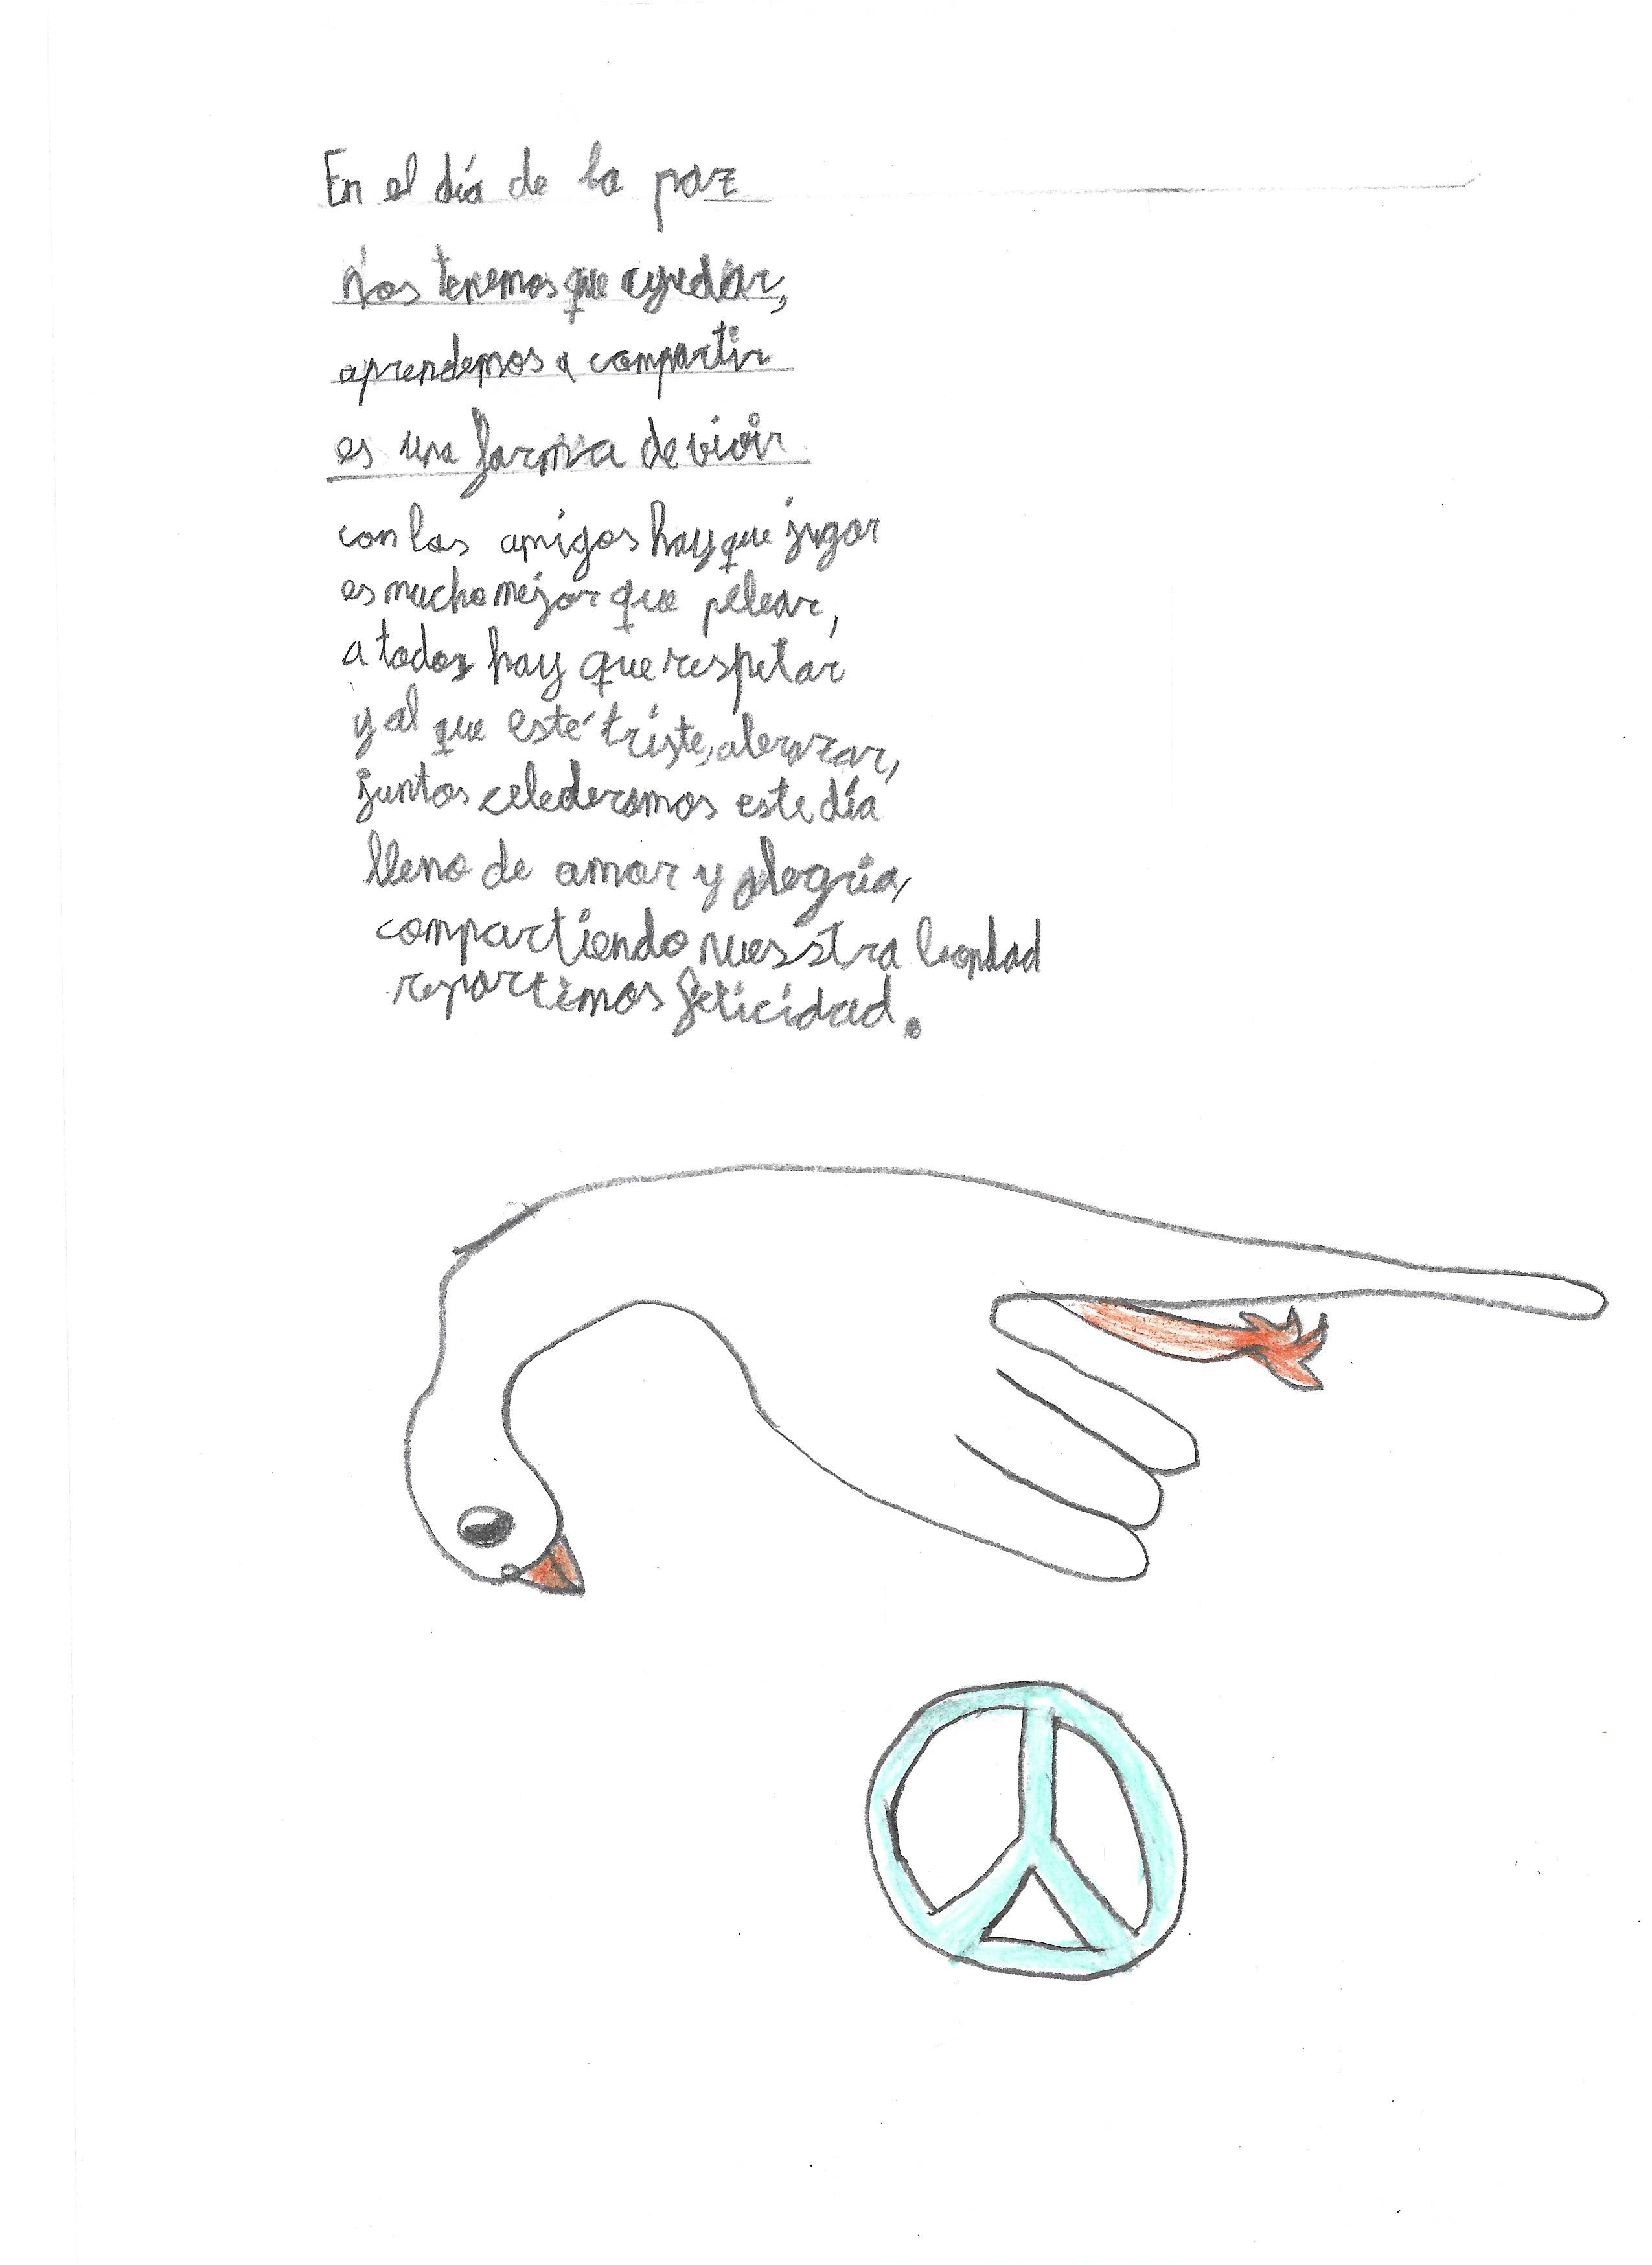 En el día de la paz
nos tenemos que ayudar,
aprendemos a compartir
es una forma de vivir
con los amigos hay que jugar
es mucho mejor que pelear,
a todos hay que respetar
y al que esté triste, abrazar,
juntos celebramos este día
lleno de amor y alegría,
compartiendo nuestra bondad
repartimos felicidad.